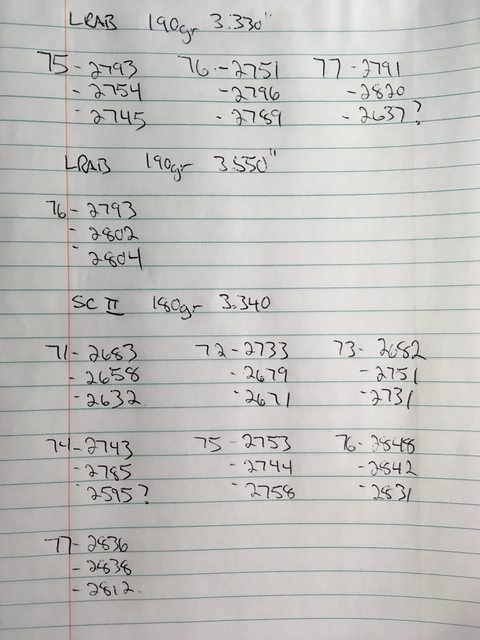 LRAB 190gr 3.330"
75 - 2793 76 - 2751 77 - 2791
- 2754 - 2796 - 2820
- 2745 - 2789 - 2637?
LRAB 190gr 3.550"
76 - 2793
- 2802
- 2804
SC II 180gr 3.340
71 - 2683 72 - 2733 73 - 2682
- 2658 - 2679 - 2751
- 2632 - 2671 - 2731
74 - 2743 75 - 2753 76 - 2848
- 2785 - 2744 - 2842
- 2595? - 2758 - 2831
77 - 2836
- 2838
- 2812.